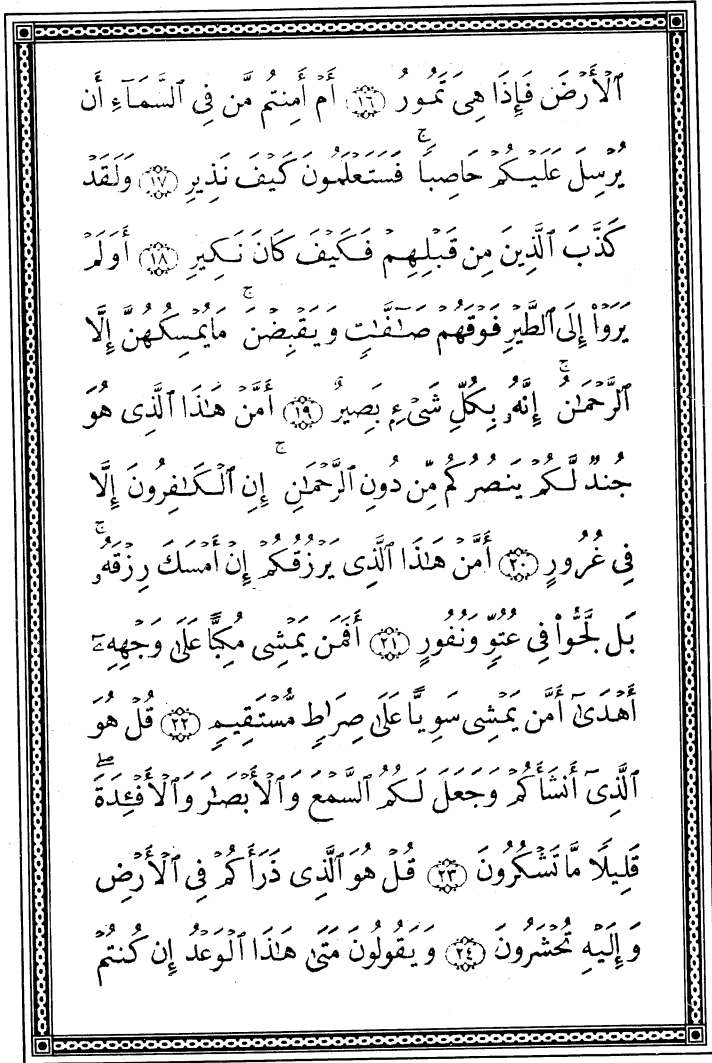 ٱلْأَرْضَ فَإِذَا هِىَ تَمُورُ ١٦ أَمْ أَمِنتُم مَّن فِى ٱلسَّمَآءِ أَن
يُرْسِلَ عَلَيْكُمْ حَاصِبًا ۚ فَسَتَعْلَمُونَ كَيْفَ نَذِيرِ ١٧ وَلَقَدْ
كَذَّبَ ٱلَّذِينَ مِن قَبْلِهِمْ فَكَيْفَ كَانَ نَكِيرِ ١٨ أَوَلَمْ
يَرَوْا۟ إِلَى ٱلطَّيْرِ فَوْقَهُمْ صَـٰٓفَّـٰتٍ وَيَقْبِضْنَ ۚ مَا يُمْسِكُهُنَّ إِلَّا
ٱلرَّحْمَـٰنُ ۚ إِنَّهُۥ بِكُلِّ شَىْءٍۭ بَصِيرٌ ١٩ أَمَّنْ هَـٰذَا ٱلَّذِى هُوَ
جُندٌ لَّكُمْ يَنصُرُكُم مِّن دُونِ ٱلرَّحْمَـٰنِ ۚ إِنِ ٱلْكَـٰفِرُونَ إِلَّا
فِى غُرُورٍ ٢٠ أَمَّنْ هَـٰذَا ٱلَّذِى يَرْزُقُكُمْ إِنْ أَمْسَكَ رِزْقَهُۥ ۚ
بَل لَّجُّوا۟ فِى عُتُوٍّ وَنُفُورٍ ٢١ أَفَمَن يَمْشِى مُكِبًّا عَلَىٰ وَجْهِهِۦٓ
أَهْدَىٰٓ أَمَّن يَمْشِى سَوِيًّا عَلَىٰ صِرَٰطٍ مُّسْتَقِيمٍ ٢٢ قُلْ هُوَ
ٱلَّذِىٓ أَنشَأَكُمْ وَجَعَلَ لَكُمُ ٱلسَّمْعَ وَٱلْأَبْصَـٰرَ وَٱلْأَفْـِٔدَةَ ۖ
قَلِيلًا مَّا تَشْكُرُونَ ٢٣ قُلْ هُوَ ٱلَّذِى ذَرَأَكُمْ فِى ٱلْأَرْضِ
وَإِلَيْهِ تُحْشَرُونَ ٢٤ وَيَقُولُونَ مَتَىٰ هَـٰذَا ٱلْوَعْدُ إِن كُنتُمْ